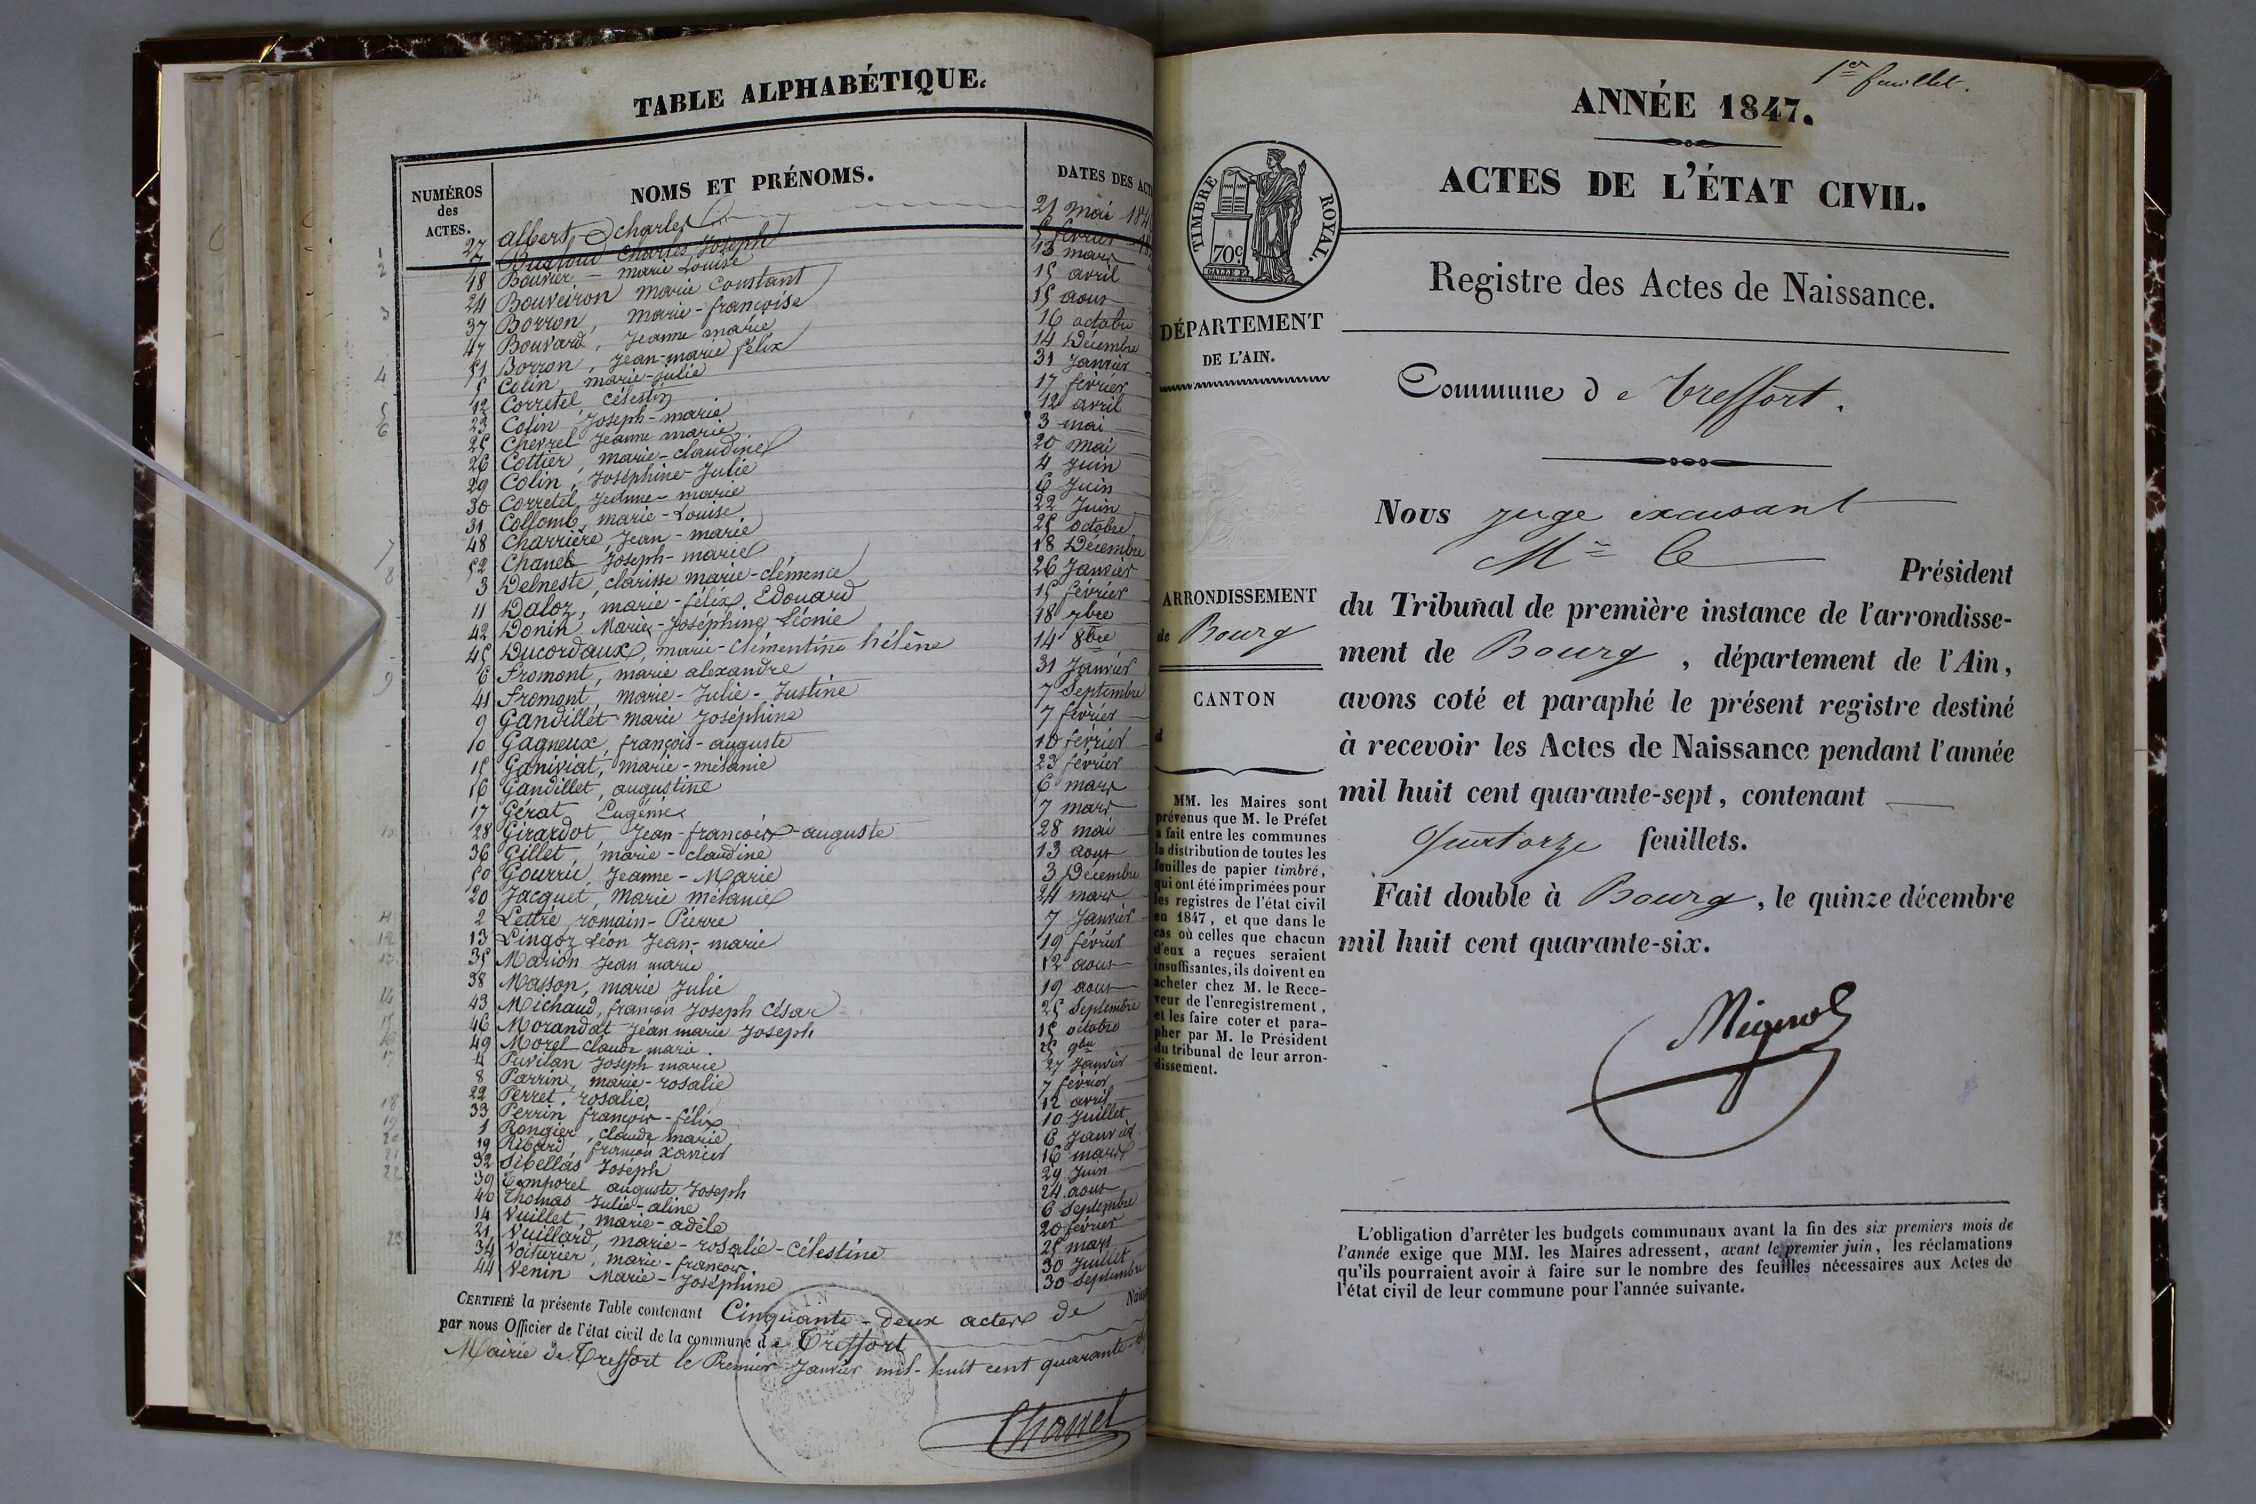 TABLE ALPHABÉTIQUE.
NUMÉROS des ACTES. NOMS ET PRÉNOMS. DATES DES ACT
27 albert charles 21 mai 184
7 Charles Joseph 5 février
18 Bouvier marie Louise 13 mars
24 Bouveiron marie Constant 15 avril
37 Borron, marie-françoise 15 aout
47 Bouvard, Jeanne marie 16 octobre
51 Borron, Jean-marie félix 14 Décembre
5 Colin, marie-julie 31 Janvier
12 Corretel, célestin 17 février
23 Colin Joseph-marie 12 avril
25 Chevrel Jeanne marie 3 mai
26 Cottier, marie-claudine 20 mai
29 Colin, Joséphine Julie 4 Juin
30 Corretel Jeanne-marie 6 Juin
31 Collomb, marie-Louise 22 Juin
48 Charrière, Jean-marie 25 octobre
52 Chanel Joseph-marie 18 Décembre
3 Delneste, clarisse marie-clémence 26 Janvier
11 Daloz, marie-félix Edouard 15 février
42 Donin, Marie-Joséphine Léonie 18 7bre
45 Ducordaux, marie-Clémentine hélène 14 8bre
6 Fromont, marie alexandre 31 Janvier
41 Fromont, marie-Julie-Justine 7 Septembre
9 Gandillet marie Joséphine 7 février
10 Gagneux, françois-auguste 10 février
15 Ganiviat, marie-mélanie 23 février
16 Gandillet, augustine 6 mars
17 Gérat Eugénie 7 mars
28 Girardot Jean-françois-auguste 28 mai
36 Gillet, marie-claudine 13 aout
50 Gourru, Jeanne-Marie 3 Décembre
20 Jacquet, Marie mélanie 24 mars
2 Lettré, romain-Pierre 7 Janvier
13 Lingoz Léon Jean-marie 19 février
35 Marion Jean marie 12 aout
38 Masson, marie Julie 19 aout
43 Michaud, françois Joseph César 25 Septembre
46 Morandat Jean marie Joseph 15 octobre
49 Morel claude marie 25 9bre
4 Puvilan Joseph marie 27 Janvier
8 Perrin, marie-rosalie 7 février
22 Perret, rosalie 12 avril
33 Perrin françois-félix 10 Juillet
1 Rongier, claude marie 6 Janvier
19 Ribard, françois Xavier 16 mars
32 Sibellas Joseph 29 Juin
39 Temporel auguste Joseph 24 aout
40 Thomas Julie-aline 6 Septembre
14 Vuillet, marie-adèle 20 février
21 Vuillard, marie-rosalie-Célestine 25 mars
34 Voiturier, marie-françois 30 Juillet
44 Venin Marie-Joséphine 30 Septembre
CERTIFIÉ la présente Table contenant Cinquante-deux actes de Naiss
par nous Officier de l'état civil de la commune de Treffort
Mairie de Treffort le Premier Janvier mil-huit cent quarante-
Chanel
1er feuillet.
ANNÉE 1847.
ACTES DE L'ÉTAT CIVIL.
TIMBRE ROYAL.
70c
Registre des Actes de Naissance.
DÉPARTEMENT
DE L'AIN.
Commune de Treffort.
Nous juge excusant
Mr le Président
ARRONDISSEMENT
de Bourg
CANTON
d
du Tribunal de première instance de l'arrondisse-
ment de Bourg, département de l'Ain,
avons coté et paraphé le présent registre destiné
à recevoir les Actes de Naissance pendant l'année
mil huit cent quarante-sept, contenant
Quatorze feuillets.
Fait double à Bourg, le quinze décembre
mil huit cent quarante-six.
MM. les Maires sont
prévenus que M. le Préfet
a fait entre les communes
la distribution de toutes les
feuilles de papier timbré,
qui ont été imprimées pour
les registres de l'état civil
en 1847, et que dans le
cas où celles que chacun
d'eux a reçues seraient
insuffisantes, ils doivent en
acheter chez M. le Rece-
veur de l'enregistrement,
et les faire coter et para-
pher par M. le Président
du tribunal de leur arron-
dissement.
L'obligation d'arrêter les budgets communaux avant la fin des six premiers mois de
l'année exige que MM. les Maires adressent, avant le premier juin, les réclamations
qu'ils pourraient avoir à faire sur le nombre des feuilles nécessaires aux Actes de
l'état civil de leur commune pour l'année suivante.